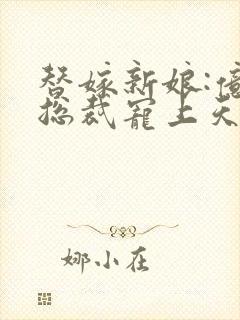 替嫁新娘:億
总裁宠上天
娜小在